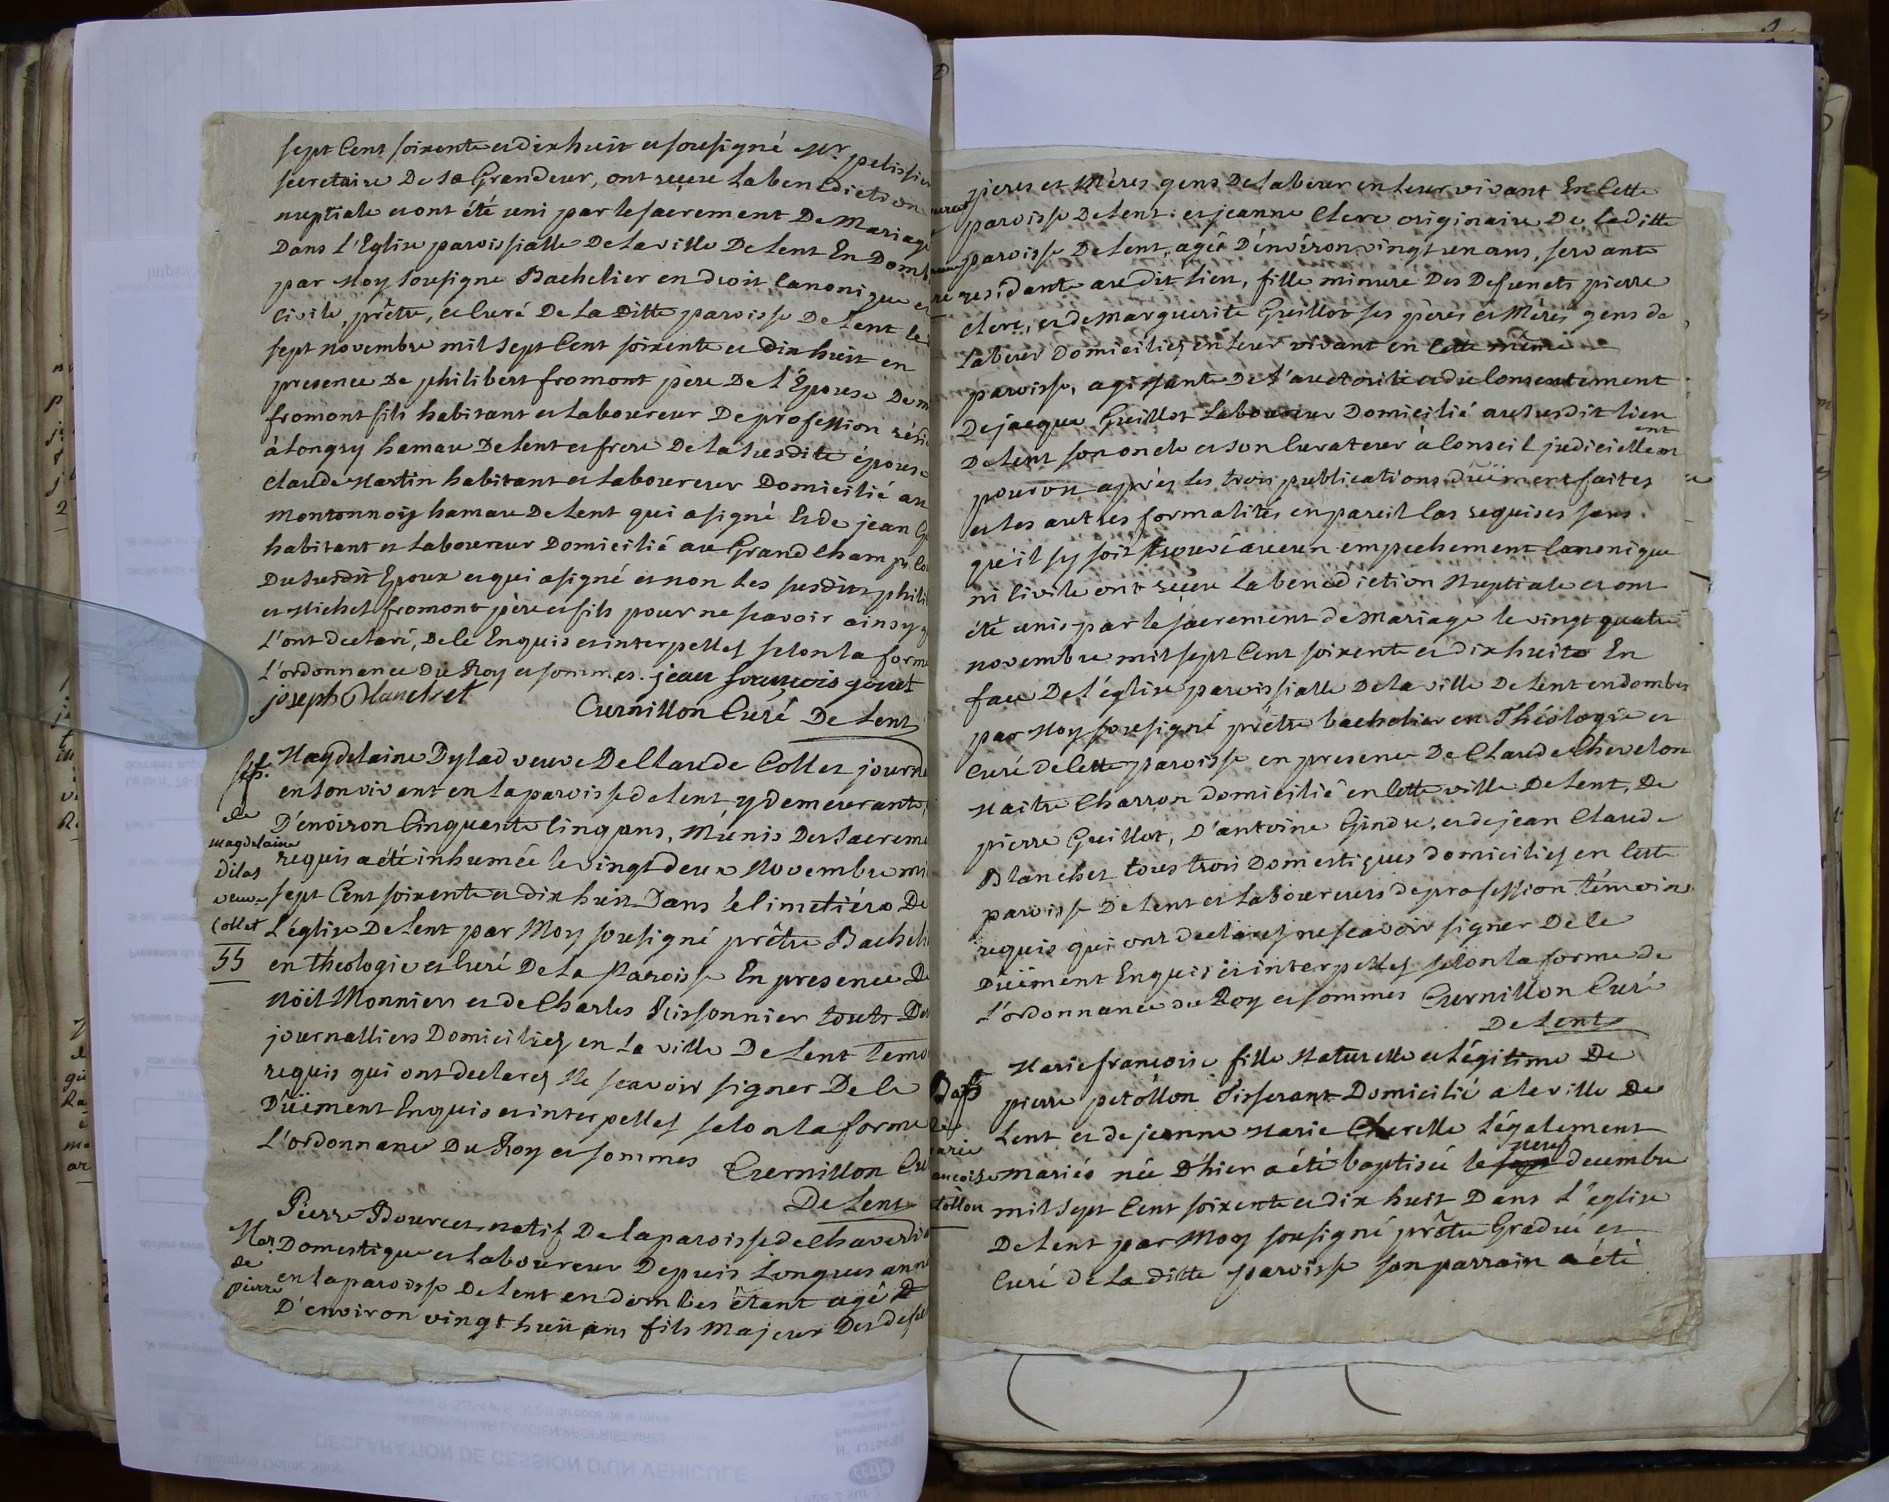 sept Cent soixente et dix huit et sousigné Mr. pelissier
secretaire De sa Grandeur, ont reçeu La benediction
nuptiale et ont été uni par le sacrement De Mariage
Dans L'Eglise paroissialle De la ville De Lent En Domb
par Moy sousigné Bachelier en droit Canonique et
Civile, prêtre, et Curé De La Ditte paroisse De Lent le
sept novembre mil sept Cent soixente et dix huit en
presence De philibert fromont père De L'Epouse De m
fromont fils habitant et Laboureur De profession resid
à Longry hamau De Lent et frere De la susdite épouse
Claude Martin habitant et Laboureur Domicilié au
Montonnoy hamau De Lent qui a signé Et de jean G
habitant et Laboureur Domicilié au Grand Champ
Du susdit Epoux et qui a signé et non Les susdits phili
et Michel fromont père et fils pour ne scavoir ainsy q
L'ont declaré, De le Enquis et interpelles selon la forme
L'ordonnance Du Roy et sommes. jean françois gouet
joseph Blanchet
Curnillon Curé De Lent
Sep.
de
magdelaine
Dilas
veuve
Collet
55
Magdelaine Dylad veuve De Claude Collet journ
en son vivent en la paroisse de Lent y demeurante,
D'environ Cinquante Cinq ans, Munis Des sacreme
requis a été inhumée le vingt deux Novembre mi
sept Cent soixente et dix huit Dans le Cimetière De
L'église De Lent par Moy sousigné prêtre Bachel
en theologie et Curé De La Paroisse En presence De
Nöel Monnier et de Charles Pissonnier touts De
journalliers Domiciliez en La ville De Lent temo
requis qui ont declarez Ne scavoir signer De le
Düement Enquis et interpelles selon la forme
L'ordonnance Du Roy et sommes Curnillon Cu
De Lent
Mar.
de
pierre
Pierre Bourcet natif De la paroisse de Chaver
Domestique et Laboureur Depuis Longues ann
en la paroisse De Lent en dombes êtant agé D
D'environ vingt huit ans fils Majeur Des def
pieres et Mères gens De labeur en Leur vivant En Cette
paroisse De Lent: et jeanne Clerc originaire De La ditte
paroisse De Lent, agée D'environ vingt un ans, servante
residante au dit Lieu, fille mineure Des Defunets pierre
Clerc, et de Marguerite Guillot ses pères et Mères gens de
Labeur Domiciliez en Leur vivant en Cette même
paroisse, agissante De L'auctorité et du Consentement
De jacque Guillot Laboureur Domicilié au susdit lieu
De Lent son oncle et son Curateur à Conseil judiciellement
pouron après Les trois publications düement faites
et les autres formalités en pareil Cas requises sans
qu'il sy soit trouvé aucun empechement Canonique
ni Civile ont reçeu La benediction Nuptiale et ont
été unis par le sacrement de Mariage le vingt quatre
novembre mil sept Cent soixente et dix huit En
face De L'église paroissialle De la ville De Lent en dombes
par Moy sousigné prêtre bachelier en Théologie et
Curé de Cette paroisse en presence De Claude Chevelon
Maitre Charron domicilié en Cette ville De Lent, De
pierre Guillot, D'antoine Gindre, et de jean Claude
Blanchet tous trois Domestiques domiciliez en Cette
paroisse De Lent et Laboureurs de profession témoins
requis qui ont declarez ne scavoir signer De le
Düement Enquis et interpellez selon la forme de
L'ordonnance du Roy et sommes Curnillon Curé
De Lent
Bap
arie
ançoise
tollon
Marie françoise fille Naturelle et Légitime De
pierre petollon Tisserant Domicilié a la ville De
Lent et de jeanne Marie Cherelle Légalement
mariés née D'hier a été baptisée le neuf decembre
mil sept Cent soixente et dix huit Dans L'église
De Lent par Moy sousigné prêtre Gradué et
Curé De La ditte paroisse son parrain a été
DECLARATION DE CESSION D'UN VEHICULE